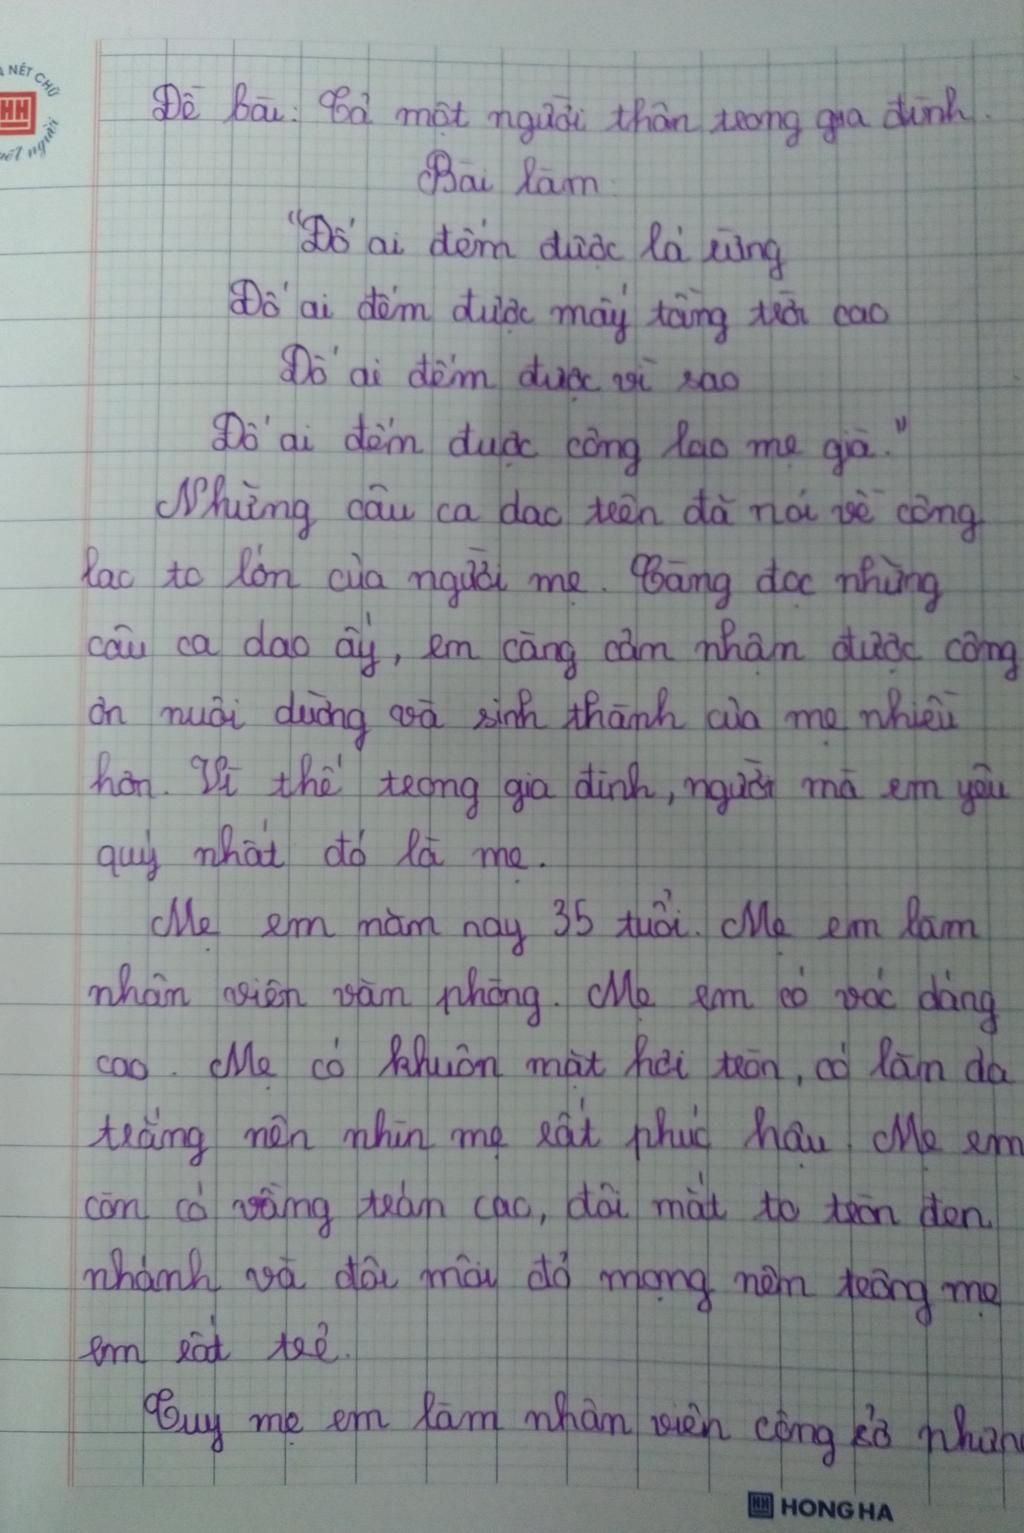 NÉT CHỮ
HH
nét người
Đề bài: Tả một người thân trong gia đình.
Bài làm
"Đố ai đếm được lá rừng
Đố ai đếm được mấy tầng trời cao
Đố ai đếm được vì sao
Đố ai đếm được công lao mẹ già."
Những câu ca dao trên đã nói về công
lao to lớn của người mẹ. Càng đọc những
câu ca dao ấy, em càng cảm nhận được công
ơn nuôi dưỡng và sinh thành của mẹ nhiều
hơn. Vì thế trong gia đình, người mà em yêu
quý nhất đó là mẹ.
Mẹ em năm nay 35 tuổi. Mẹ em làm
nhân viên văn phòng. Mẹ em có vóc dáng
cao. Mẹ có khuôn mặt hơi tròn, có làn da
trắng nên nhìn mẹ rất phúc hậu. Mẹ em
còn có vầng trán cao, đôi mắt to tròn đen
nhánh và đôi môi đỏ mọng nên trông mẹ
em rất trẻ.
Tuy mẹ em làm nhân viên công sở nhưng
HH HONG HA